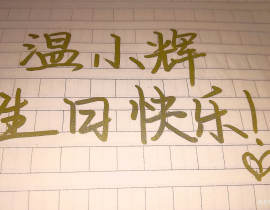 温小辉
生日快乐!